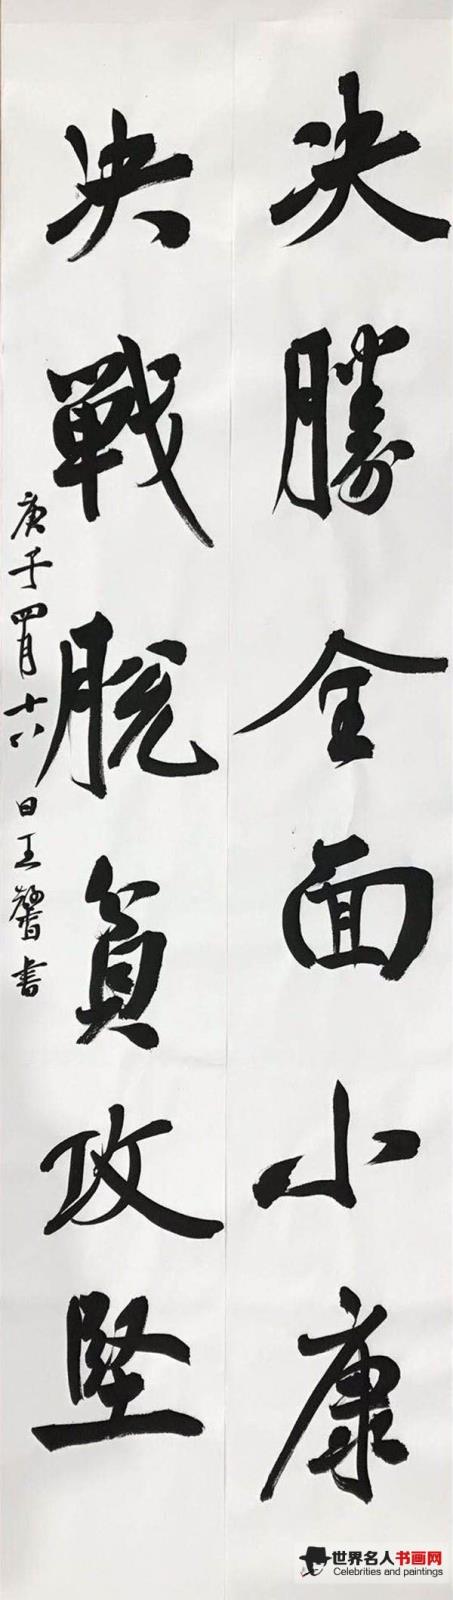 决勝全面小康
决戰脱貧攻堅
庚子四月十八日王馨書
世界名人书画网
Celebrities and paintings